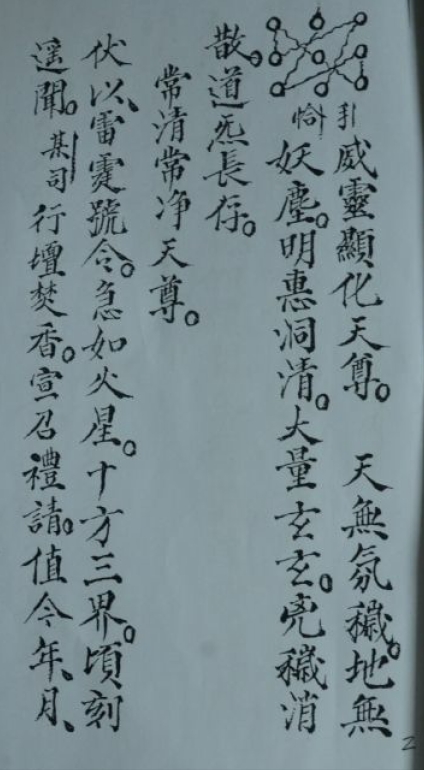 引
威靈顯化天尊。 天無氛穢。地無
恰
妖塵。明惠洞清。大量玄玄。兇穢消
散。道炁長存。
常清常净天尊。
伏以、雷霆號令。急如火星。十方三界。頃刻
遥聞。某司行壇焚香。宣召禮請。值今年、月、
2